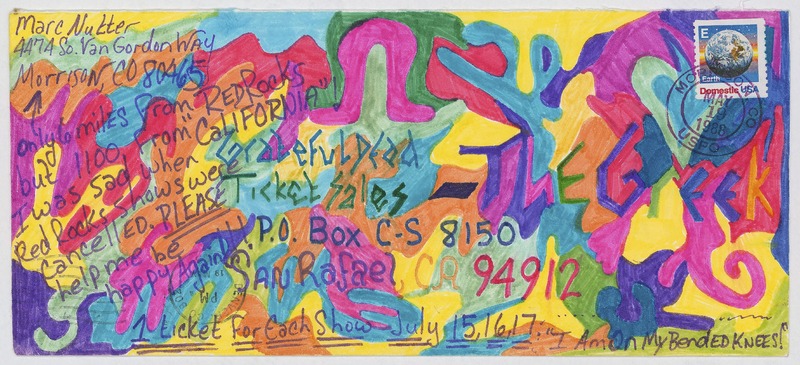 Marc Nutter
4474 So. Van Gordon Way
Morrison, CO 80465
only 6 miles from "RED ROCKS"
but 1100 from "CALIFORNIA"!
I was sad when
Red Rocks Shows were
cancelled. PLEASE
help me be
happy Again!!!
E
Earth
Domestic USA
CO
MAY
1988
Grateful Dead
Ticket Sales - THE GREEK
P.O. Box C-S 8150
SAN Rafael, CA 94912
PM
1 ticket For Each Show July 15,16,17: "I Am On My Bended KNEES!"